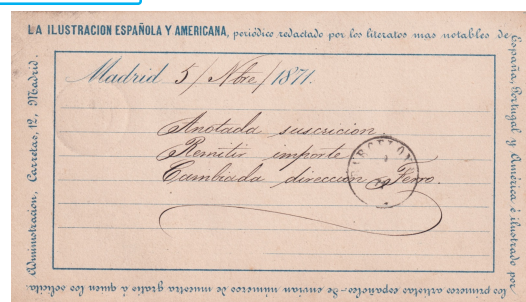 LA ILUSTRACION ESPAÑOLA Y AMERICANA, periódico redactado por los literatos mas notables de
España, Portugal y América é ilustrado por
los primeros artistas españoles.-Se envian números de muestra gratis á quien los solicite.
Administracion, Carretas, 12, Madrid.
Madrid 5/Nbre/1871.
Anotada suscricion
Remitir importe
Cambiada direccion Ferro.